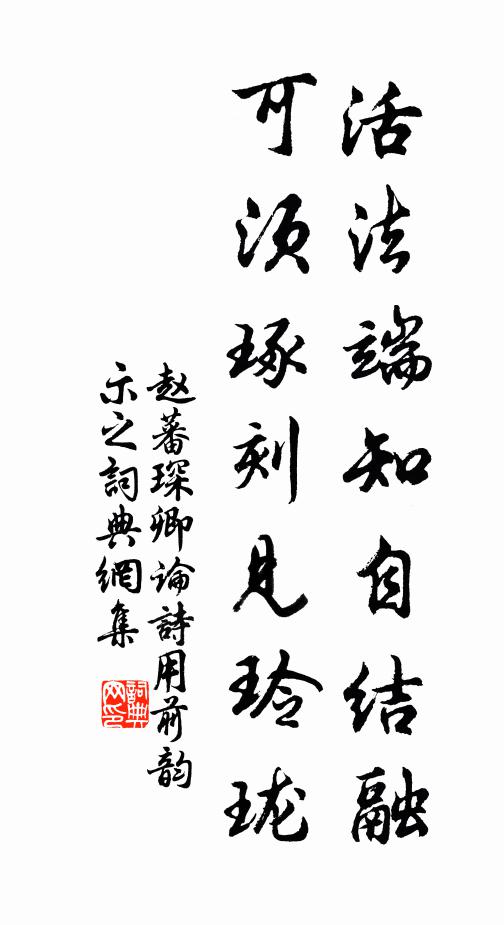 活法端知自结融
可须琢刻见玲珑
赵蕃琛卿論詩用前韵
示之詞典網集
詞典网印